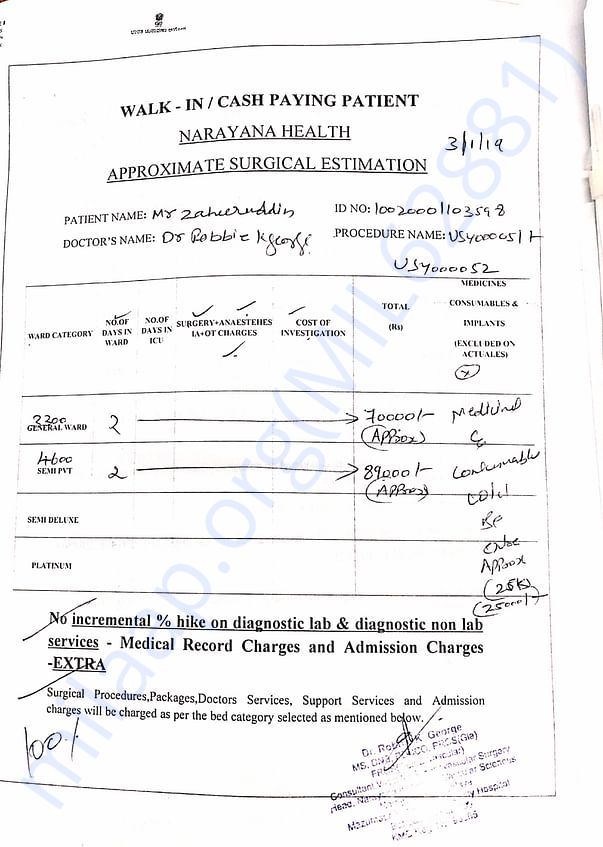 WALK - IN / CASH PAYING PATIENT
NARAYANA HEALTH
3/1/19
APPROXIMATE SURGICAL ESTIMATION
PATIENT NAME: Mr Zaheeruddin ID NO: 10020001103598
DOCTOR'S NAME: Dr Robbie K George PROCEDURE NAME: USY000051 +
USY000052
WARD CATEGORY
NO.OF DAYS IN WARD
NO.OF DAYS IN ICU
SURGERY+ANAESTEHES IA+OT CHARGES
COST OF INVESTIGATION
TOTAL (Rs)
MEDICINES CONSUMABLES & IMPLANTS (EXCLUDED ON ACTUALES)
GENERAL WARD 2 70000/- Medicines
(APPROX)
4600
SEMI PVT 2 89000/- Consumable
(APPROX)
SEMI DELUXE
PLATINUM
Approx
(25K)
(25000/-)
No incremental % hike on diagnostic lab & diagnostic non lab
services - Medical Record Charges and Admission Charges
-EXTRA
Surgical Procedures,Packages,Doctors Services, Support Services and Admission
charges will be charged as per the bed category selected as mentioned below.
Dr. Robbie K George
milaap.org(MIL62881)